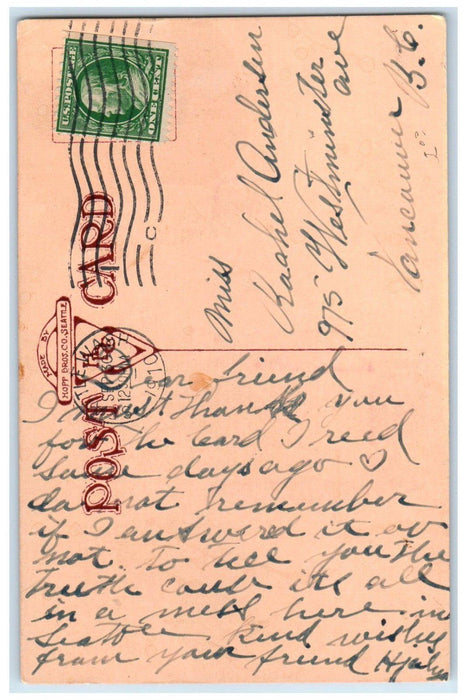 U.S. POSTAGE
ONE CENT
POSTAL CARD
MADE BY
HOPP BROS. CO. SEATTLE
1910
Miss
Rachel Andersen
975 Westminster
ave
Vancouver B.C.
friend
I must thank you
for the Card I recd
some days ago I
do not remember
if I answerd it or
not. To tell you the
truth its all
in a mess here in
Seattle Kind wishes
from your friend